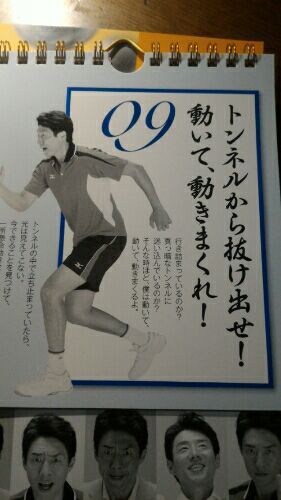 09
トンネルから抜け出せ!
動いて、動きまくれ!
行き詰まっているのか?
真っ暗なトンネルに
迷い込んでいるのか?
そんな時ほど、僕は動いて、
動いて、動きまくるよ。
トンネルの中で立ち止まっていたら、
光は見えてこない。
今できることを見つけて、